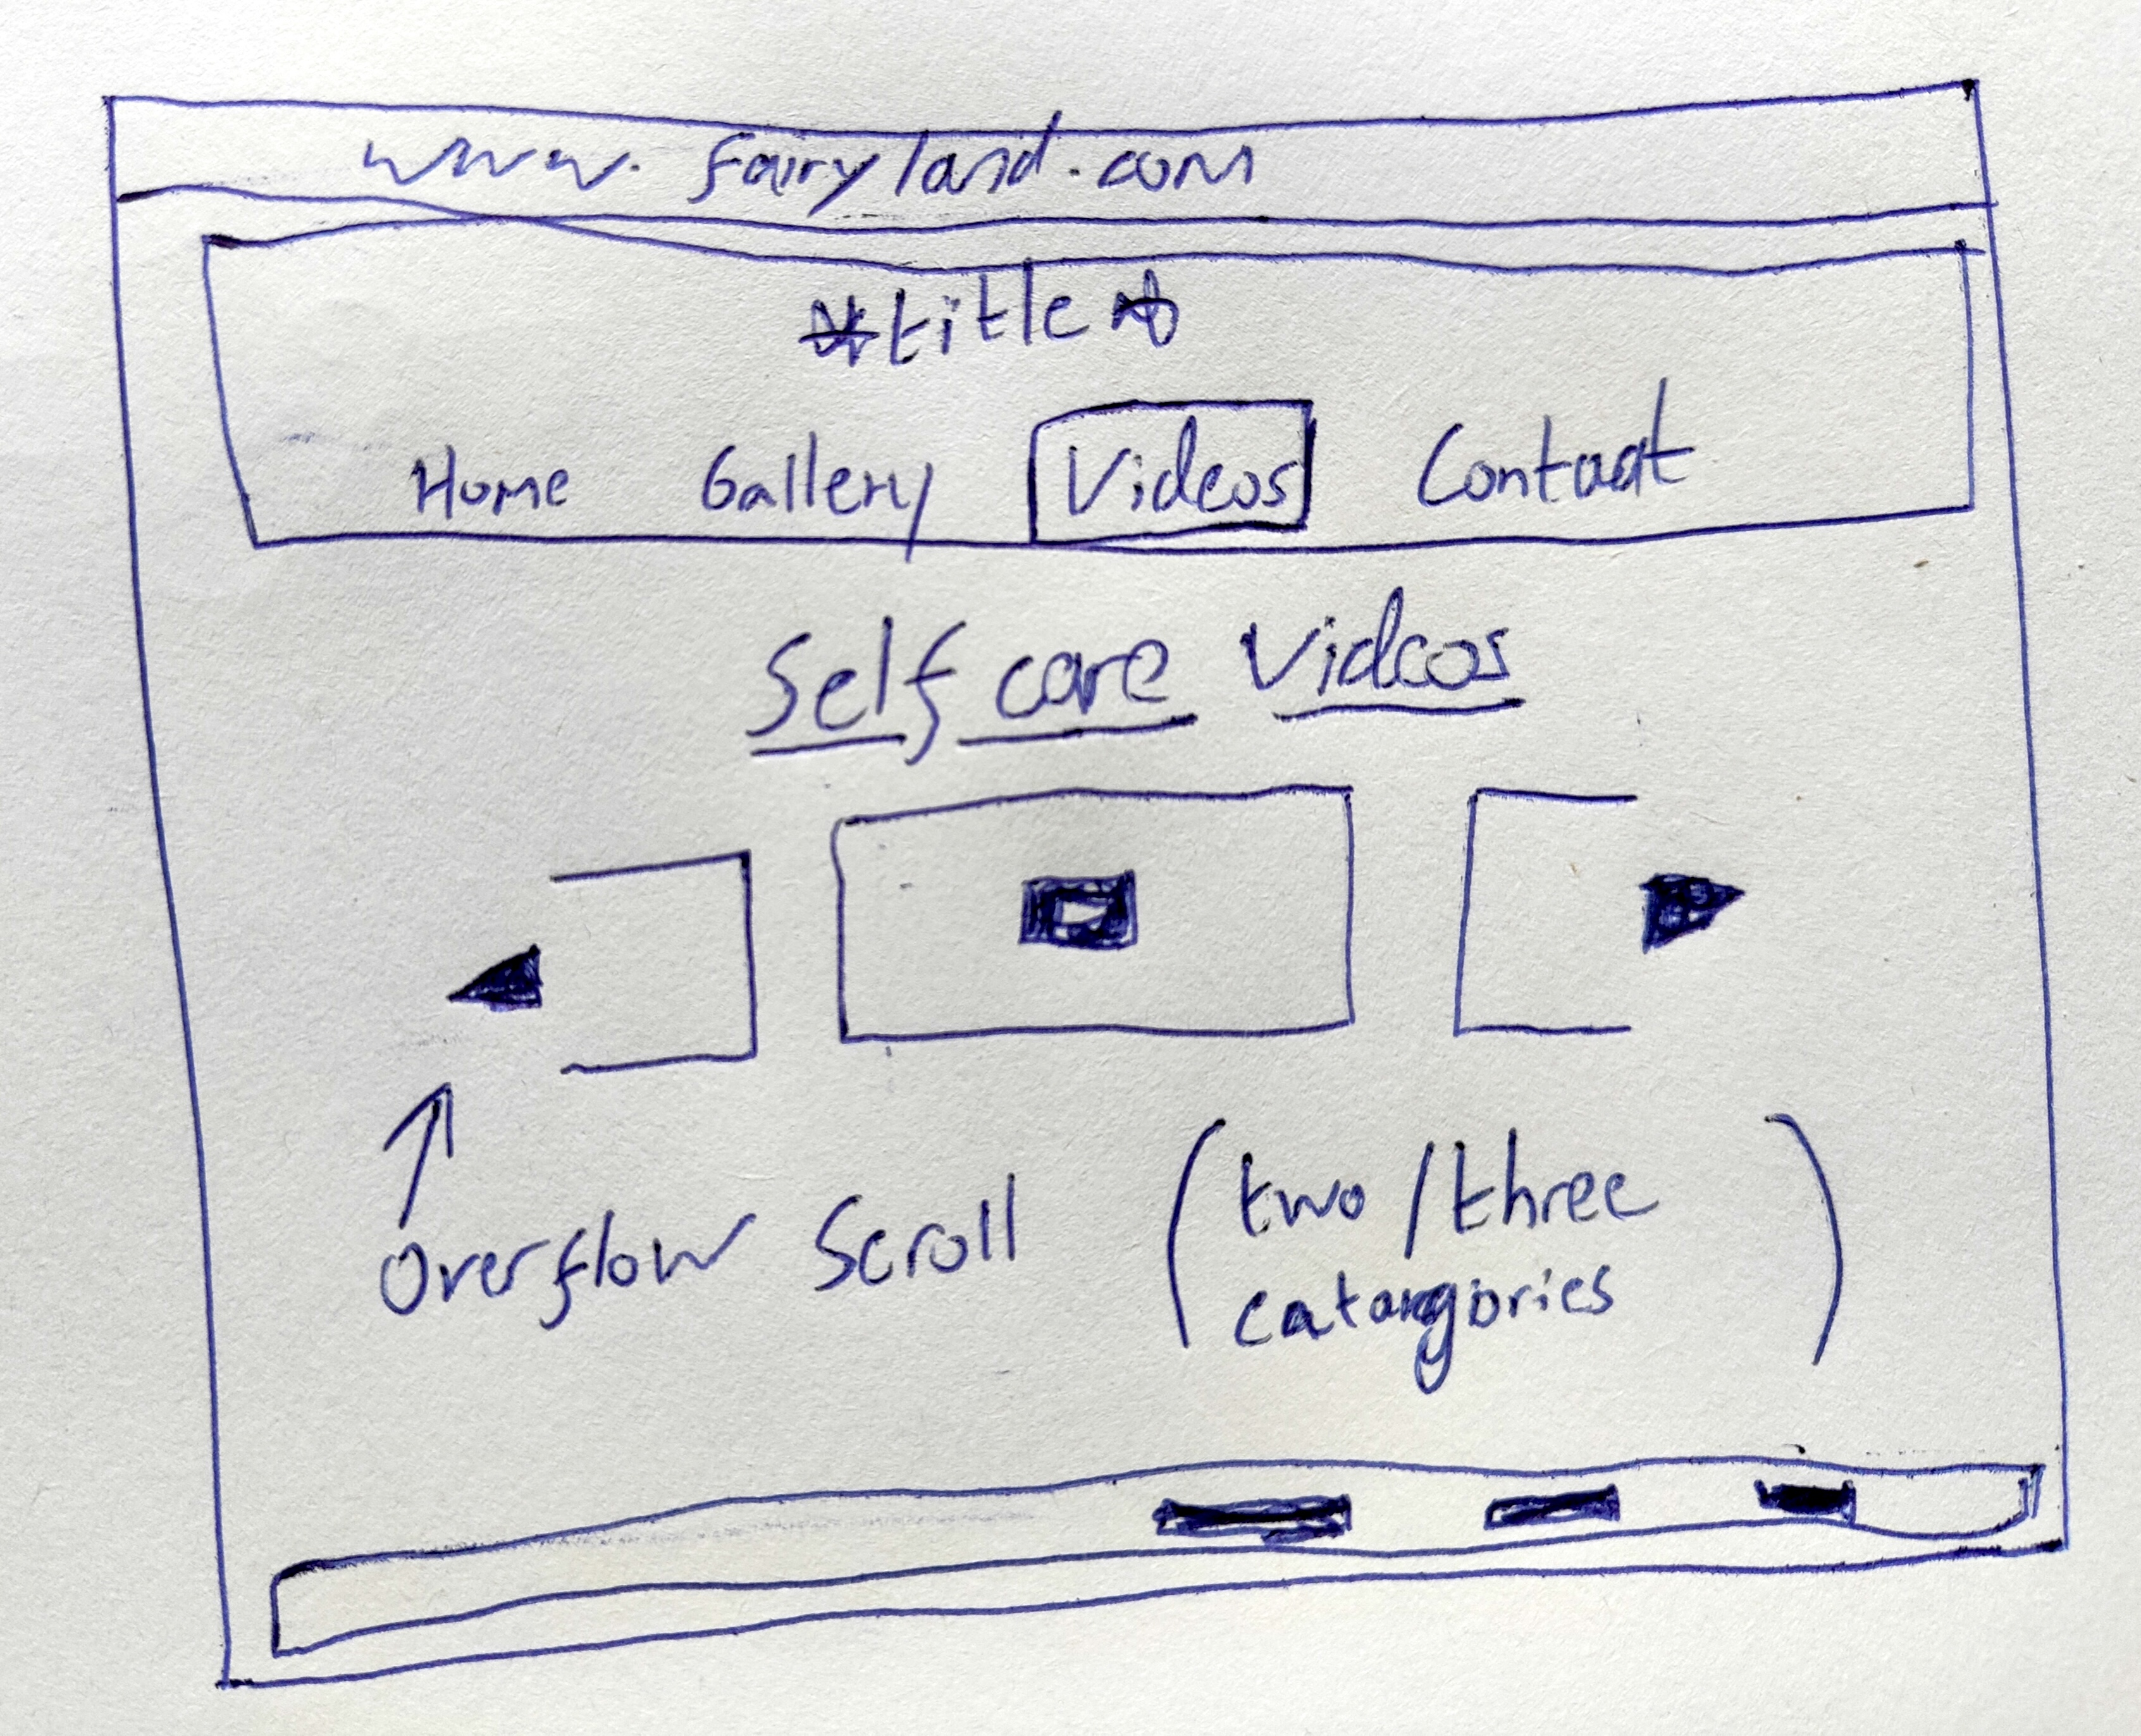 www.fairyland.com
title
Home Gallery Videos Contact
Self care Videos
Overflow Scroll
(two/three
catagories)